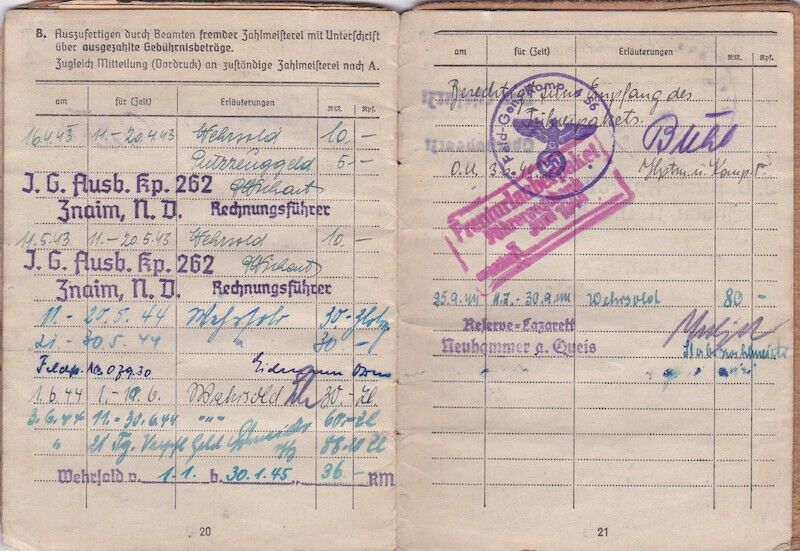 B. Auszufertigen durch Beamten fremder Zahlmeisterei mit Unterschrift
über ausgezahlte Gebührnisbeträge.
Zugleich Mitteilung (Vordruck) an zuständige Zahlmeisterei nach A.
am für (Zeit) Erläuterungen RM. Rpf.
16.4.43 11.–20.4.43 Wehrsold 10.–
Putzzeuggeld 5.–
J. G. Ausb. Kp. 262
Znaim, N. D. Rechnungsführer
11.5.43 11.–20.5.43 Wehrsold 10.–
J. G. Ausb. Kp. 262
Znaim, N. D. Rechnungsführer
11.–20.5.44 Wehrsold 30.–
21.–30.5.44 " 30.–
Feldp. No 07930
1.6.44 1.–10.6. Wehrsold 30.–Zl
3.6.44 11.–30.6.44 "" 60.–Zl
" 21 Tg. Verpfl. Geld Zl
Wehrsold v. 1.1. b. 30.1.45 36.– RM
20
am für (Zeit) Erläuterungen RM. Rpf.
Berechtigt zum Empfang des
Führerpakets.
O.U. Hptm. u. Komp.
Feld-Gend. Komp. 56
25.9.44 11.7.–30.9.44 Wehrsold 80.–
Reserve-Lazarett
Neuhammer a. Queis
Stabszahlmeister
21